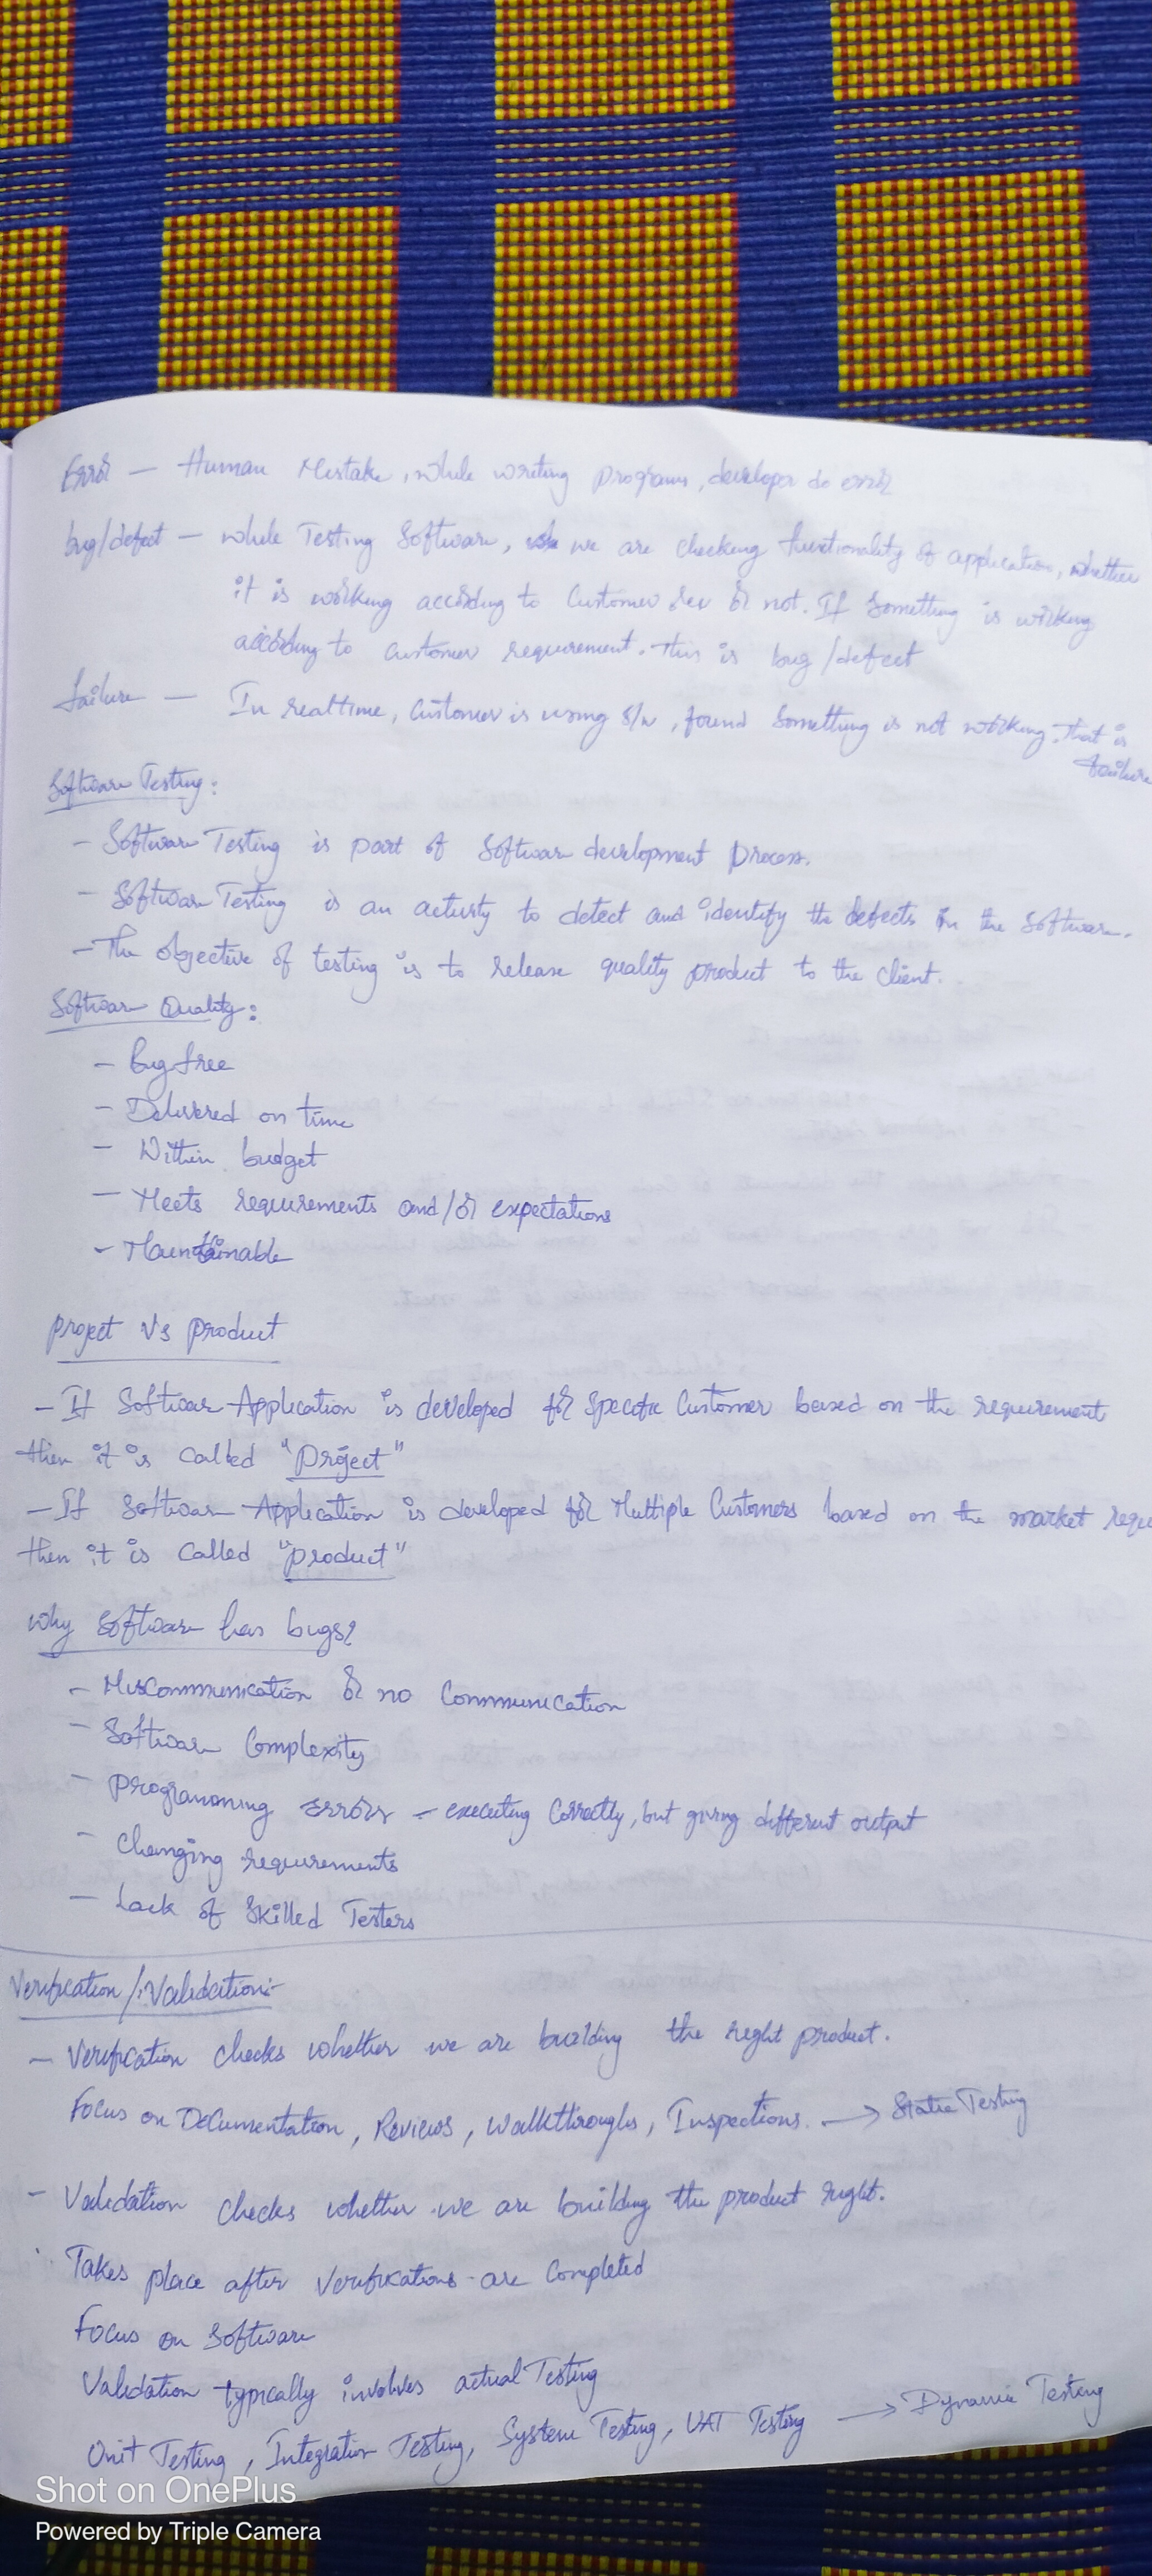 Error — Human Mistake, while writing programs, developer do error
bug/defect — while Testing Software, we are checking functionality of application, whether
it is working according to Customer or not. If Something is working
according to customer requirement. This is bug/defect
failure — In realtime, Customer is using S/w, found Something is not working. That is
failure
Software Testing:
- Software Testing is part of Software development process.
- Software Testing is an activity to detect and identify the defects in the Software.
- The objective of testing is to release quality product to the client.
Software Quality:
- Bug free
- Delivered on time
- Within budget
- Meets requirements and/or expectations
- Maintainable
Project Vs Product
- If Software Application is developed for Specific Customer based on the requirement
then it is called "Project"
- If Software Application is developed for Multiple Customers based on the market requ
then it is called "product"
why Software has bugs?
- Miscommunication or no Communication
- Software Complexity
- Programming errors - executing Correctly, but giving different output
- Changing requirements
- Lack of Skilled Testers
Verification / Validation:-
- Verification checks whether we are building the right product.
Focus on Documentation, Reviews, Walkthroughs, Inspections. → Static Testing
- Validation checks whether we are building the product right.
Takes place after Verifications are Completed
Focus on Software
Validation typically involves actual Testing
Unit Testing, Integration Testing, System Testing, UAT Testing → Dynamic Testing
Shot on OnePlus
Powered by Triple Camera